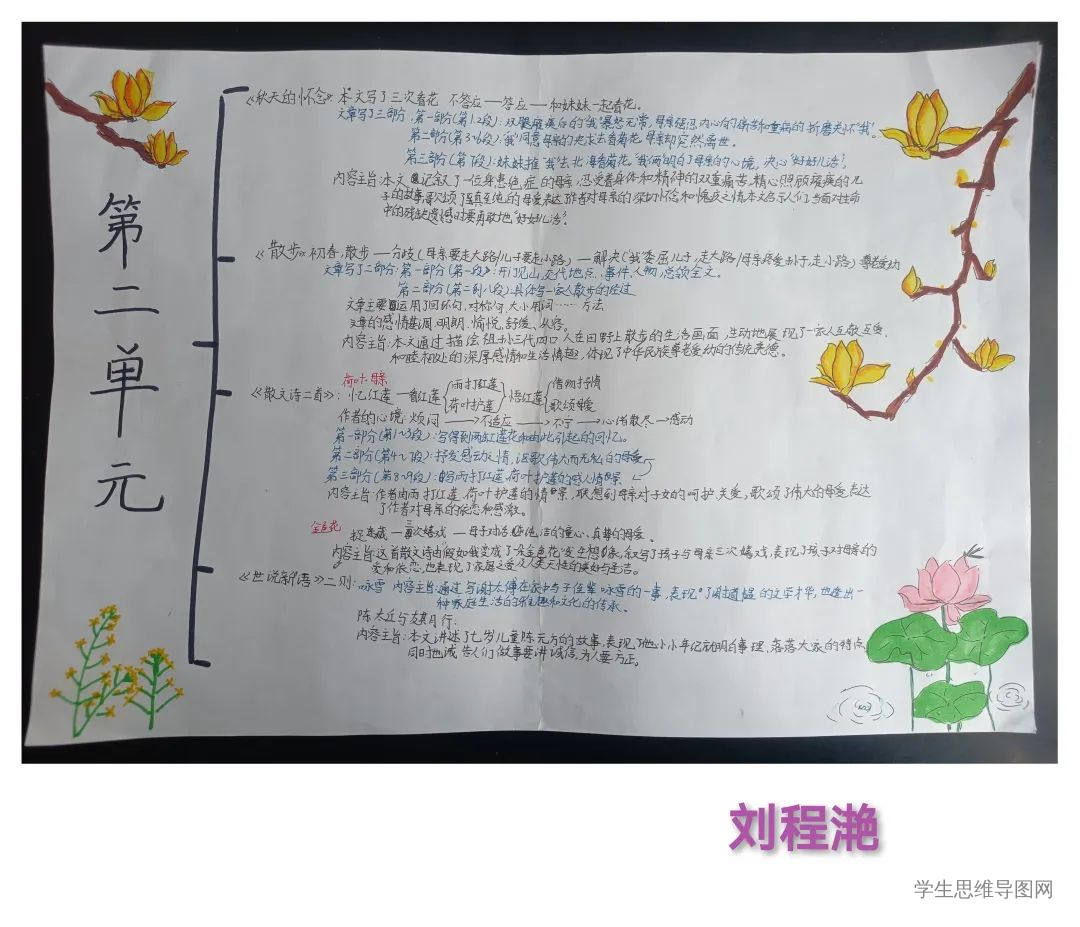 第二单元
《秋天的怀念》:本文写了三次看花 不答应——答应——和妹妹一起看花。
文章写了三部分:第一部分(第1.2段):双腿瘫痪后的"我"暴怒无常,母亲强忍内心的痛苦和重病的折磨关怀"我"。
第二部分(第3~6段):"我"同意母亲的央求去看菊花,母亲却突然离世。
第三部分(第7段):妹妹推"我"去北海看菊花,"我"俩明白了母亲的心境,决心"好好儿活"。
内容主旨:本文记叙了一位身患绝症的母亲,忍受着身体和精神的双重痛苦,精心照顾瘫痪的儿
子的故事,歌颂了至真至纯的母爱,表达作者对母亲的深切怀念和愧疚之情,本文启示人们,当面对生命
中的残缺遗憾时,要勇敢地"好好儿活"。
《散步》初春,散步——分歧(母亲要走大路/儿子要走小路)——解决("我"委屈儿子,走大路/母亲疼爱孙子,走小路) 尊老爱幼
文章写了二部分:第一部分(第一段):开门见山,交代地点、事件、人物,总领全文。
第二部分(第二到八段):具体写一家人散步的经过
文章主要运用了回环句,对称句,大小用词……方法
文章的感情基调:明朗、愉悦、舒缓、从容。
内容主旨:本文通过描绘祖孙三代四口人在田野上散步的生活画面,生动地展现了一家人互敬互爱、
和睦相处的深厚感情和生活情趣,体现了中华民族尊老爱幼的传统美德。
荷叶·母亲
《散文诗二首》:忆红莲——看红莲{雨打红莲 荷叶护莲}悟红莲{借物抒情 歌颂母爱
作者的心境:烦闷——>不适应——>不宁——>心绪散尽—>感动
第一部分(第1~3段):写得到两缸莲花和由此引起的回忆。
第二部分(第4~7段):抒发感动之情,讴歌伟大而无私的母爱
第三部分(第8~9段):由写雨打红莲,荷叶护莲的感人情景.
内容主旨:作者由雨打红莲、荷叶护莲的情景,联想到母亲对子女的呵护、关爱,歌颂了伟大的母爱,表达
了作者对母亲的依恋和感激。
金色花
捉迷藏——三次嬉戏——母子对话 纯洁的童心,真挚的母爱。
内容主旨:这首散文诗由"假如我变成了一朵金色花"发生想象,叙写了孩子与母亲三次嬉戏,表现了孩子对母亲的
爱和依恋,也表现了家庭之爱及人类天性的美好与圣洁。
《世说新语》二则:咏雪 内容主旨:通过写谢太傅在家中与子侄辈咏雪的一事,表现了谢道韫的文学才华,也透出一
种家庭生活的雅趣和文化的传承。
陈太丘与友期行:
内容主旨:本文讲述了七岁儿童陈元方的故事,表现了他小小年纪就明白事理、落落大方的特点,
同时也诫告人们做事要讲诚信,为人要方正。
刘程滟
学生思维导图网